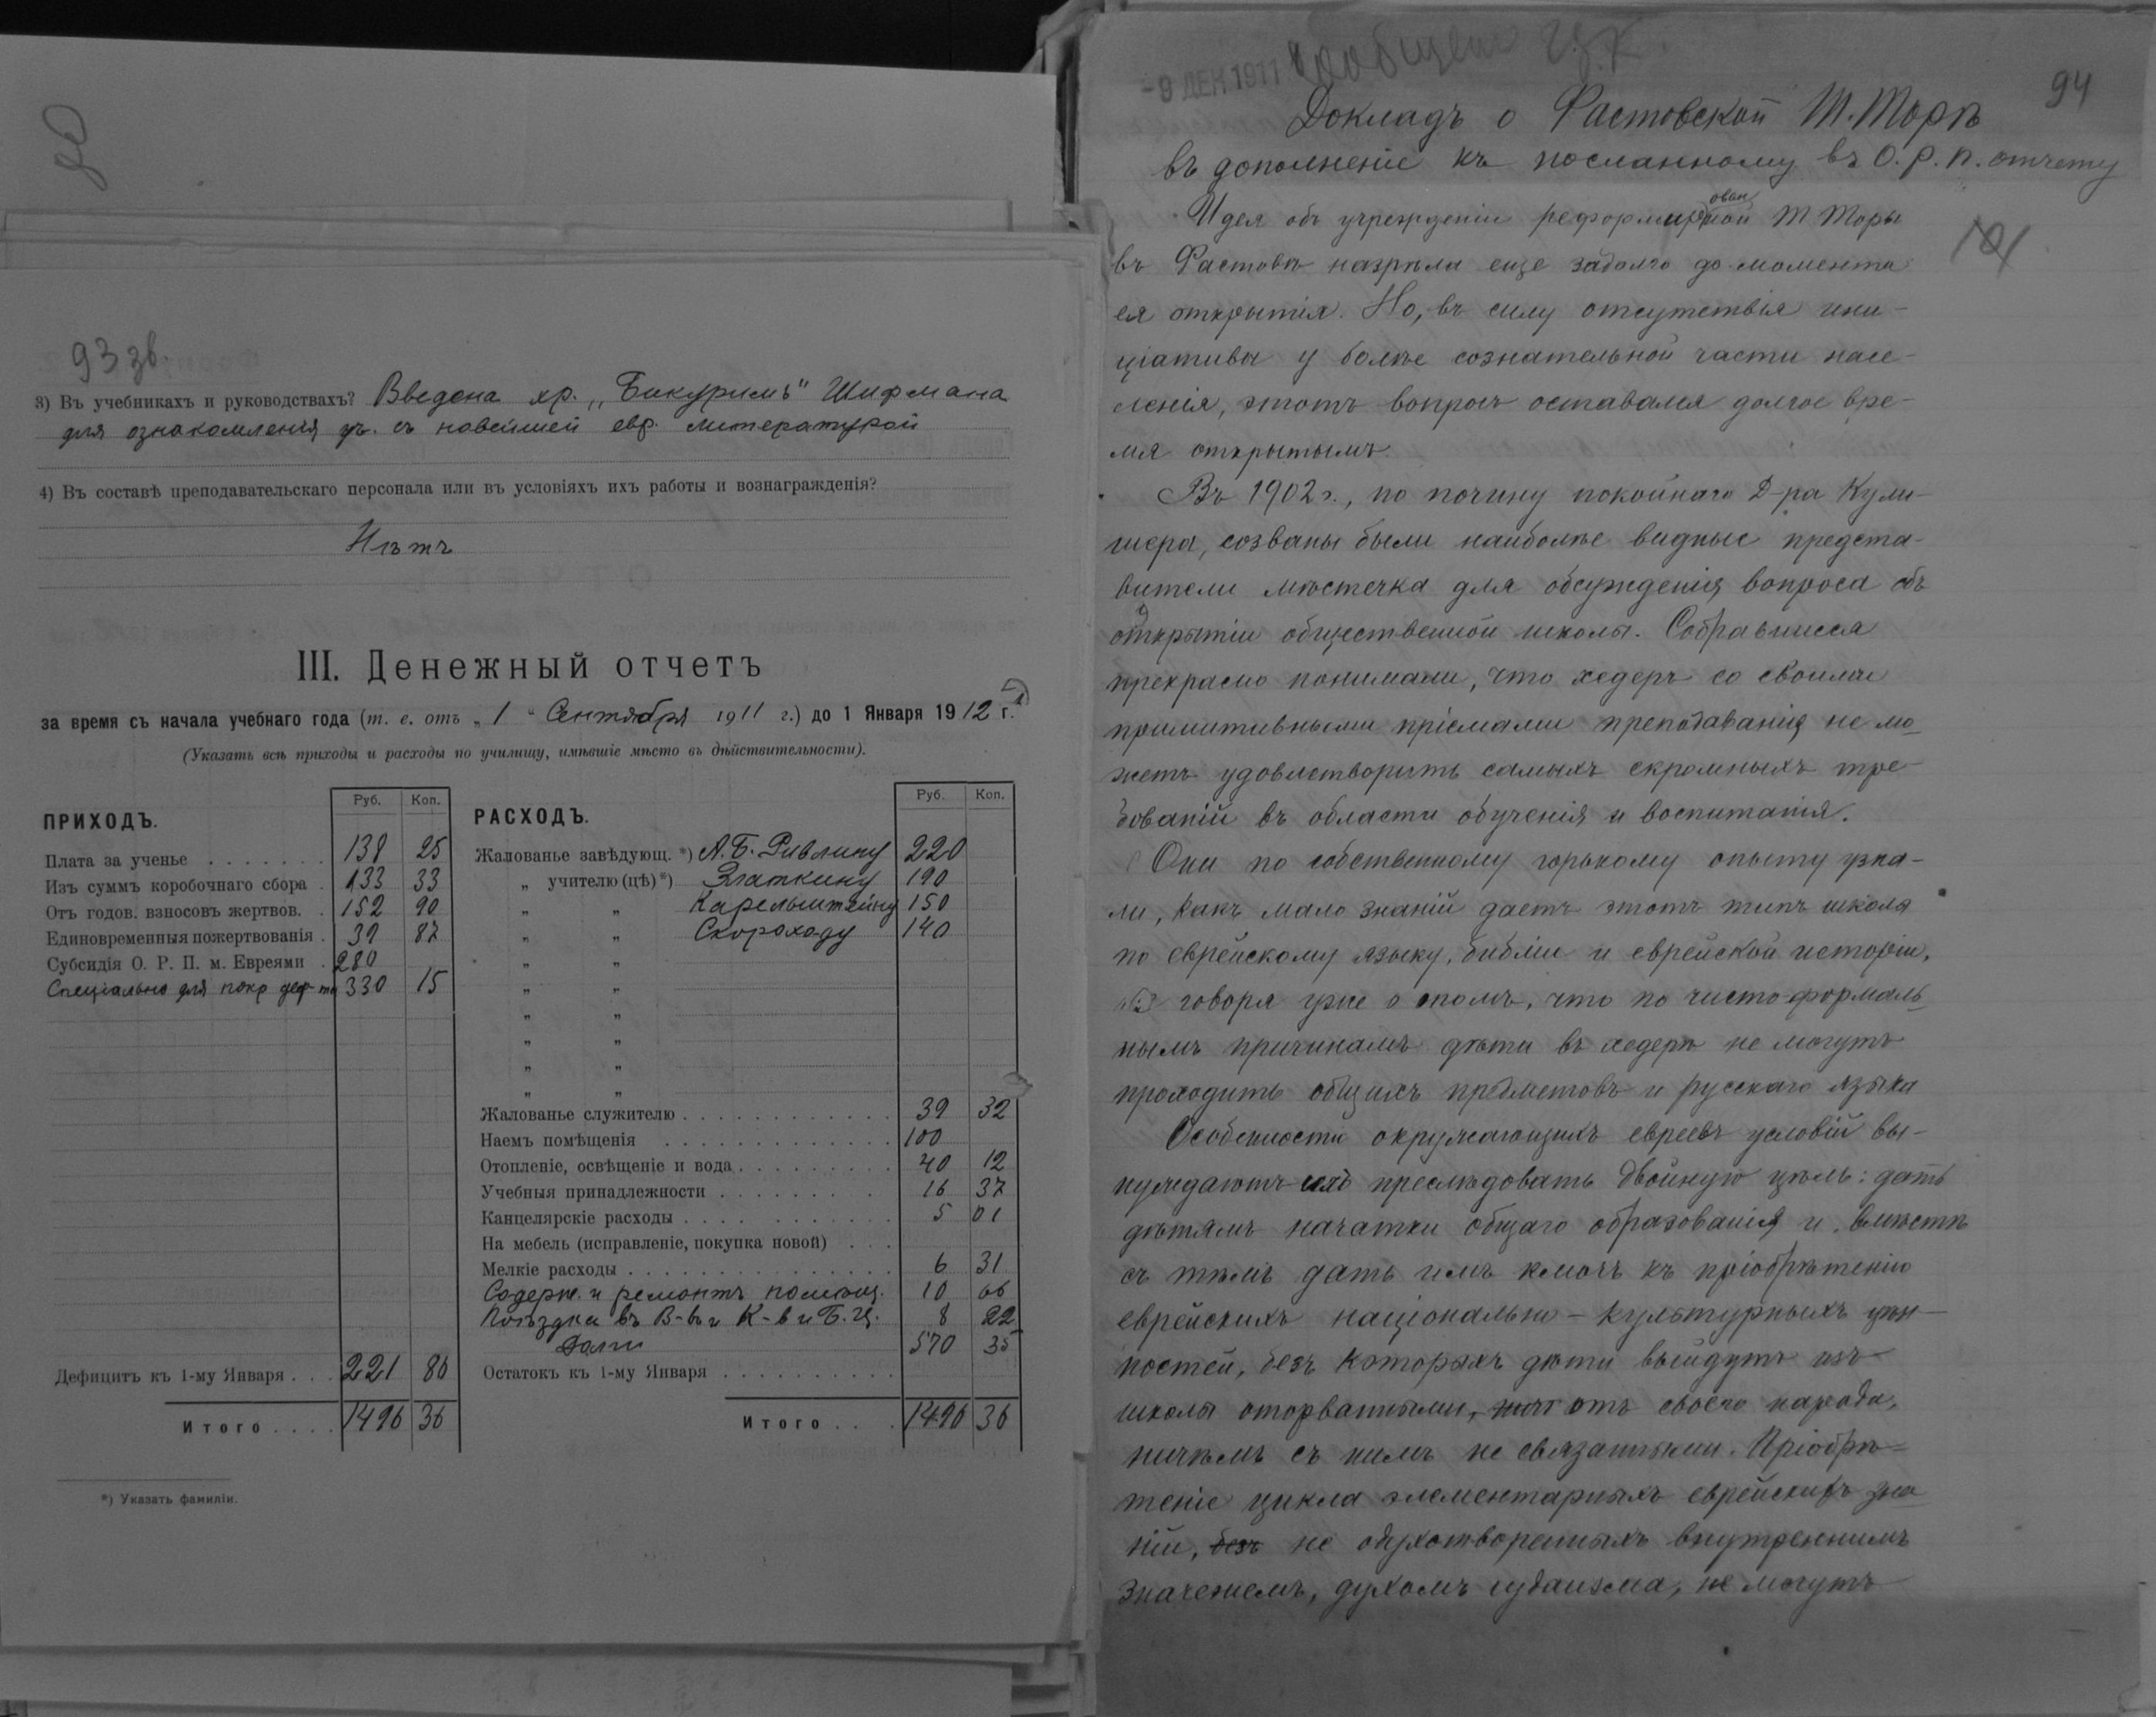 93 зв.
3) Въ учебникахъ и руководствахъ? Введена хр. „Бикуримъ" Шифмана
для ознакомления уч. съ новейшей евр. литературой
4) Въ составѣ преподавательскаго персонала или въ условіяхъ ихъ работы и вознагражденія?
Нѣтъ
III. Денежный отчетъ
за время съ начала учебнаго года (т. е. отъ „ 1 " Сентября 1911 г.) до 1 Января 1912 г.
(Указать всѣ приходы и расходы по училищу, имѣвшіе мѣсто въ дѣйствительности).
ПРИХОДЪ. Руб. Коп.
Плата за ученье 138 25
Изъ суммъ коробочнаго сбора 133 33
Отъ годов. взносовъ жертвов. 152 90
Единовременныя пожертвованія 39 87
Субсидія О. Р. П. м. Евреями 280
Спеціально для покр деф-та 330 15
Дефицитъ къ 1-му Января 221 86
Итого 1496 36
РАСХОДЪ. Руб. Коп.
Жалованье завѣдующ. *) А. Б. Ривлину 220
„ учителю (цѣ) *) Златкину 190
„ „ Карельштейну 150
„ „ Скороходу 140
„ „
„ „
„ „
„ „
„ „
„ „
Жалованье служителю 39 32
Наемъ помѣщенія 100
Отопленіе, освѣщеніе и вода 40 12
Учебныя принадлежности 16 37
Канцелярскіе расходы 5 01
На мебель (исправленіе, покупка новой)
Мелкіе расходы 6 31
Содерж. и ремонтъ помѣщ. 10 66
Поѣздка въ В-въ и К-в и Б. Ц. 8 22
Долги 570 35
Остатокъ къ 1-му Января
Итого 1496 36
*) Указать фамиліи.
-9 ДЕК 1911
94
Докладъ о Фастовской Т. Торѣ
въ дополненіе къ посланному въ О. Р. П. отчету
Идея объ учрежденіи реформированной Т Торы
въ Фастовѣ назрѣла еще задолго до момента
ея открытія. Но, въ силу отсутствія ини-
ціативы у болѣе сознательной части насе-
ленія, этотъ вопросъ оставался долгое вре-
мя открытымъ.
Въ 1902 г., по почину покойнаго Д-ра Кули-
шера, созваны были наиболѣе видные предста-
вители мѣстечка для обсужденія вопроса объ
открытіи общественной школы. Собравшиеся
прекрасно понимали, что хедеръ со своими
примитивными пріемами преподаванія не мо-
жетъ удовлетворить самыхъ скромныхъ тре-
бованій въ области обученія и воспитанія.
Они по собственному горькому опыту узна-
ли, какъ мало знаній даетъ этотъ типъ школы
по еврейскому языку, библіи и еврейской исторіи,
не говоря уже о томъ, что по чисто формаль-
нымъ причинамъ дѣти въ хедерѣ не могутъ
проходить общихъ предметовъ и русскаго языка
Особенности окружающихъ евреевъ условій вы-
нуждаютъ ихъ преслѣдовать двойную цѣль: дать
дѣтямъ начатки общаго образованія и вмѣстѣ
съ тѣмъ дать имъ ключъ къ пріобрѣтенію
еврейскихъ національно-культурныхъ цѣн-
ностей, безъ которыхъ дѣти выйдутъ изъ
школы оторванными, отъ своего народа,
ничѣмъ съ нимъ не связанными. Пріобрѣ-
теніе цикла элементарныхъ еврейскихъ зна
ній, безъ не одухотворенныхъ внутреннимъ
значеніемъ, духомъ іудаизма, не могутъ